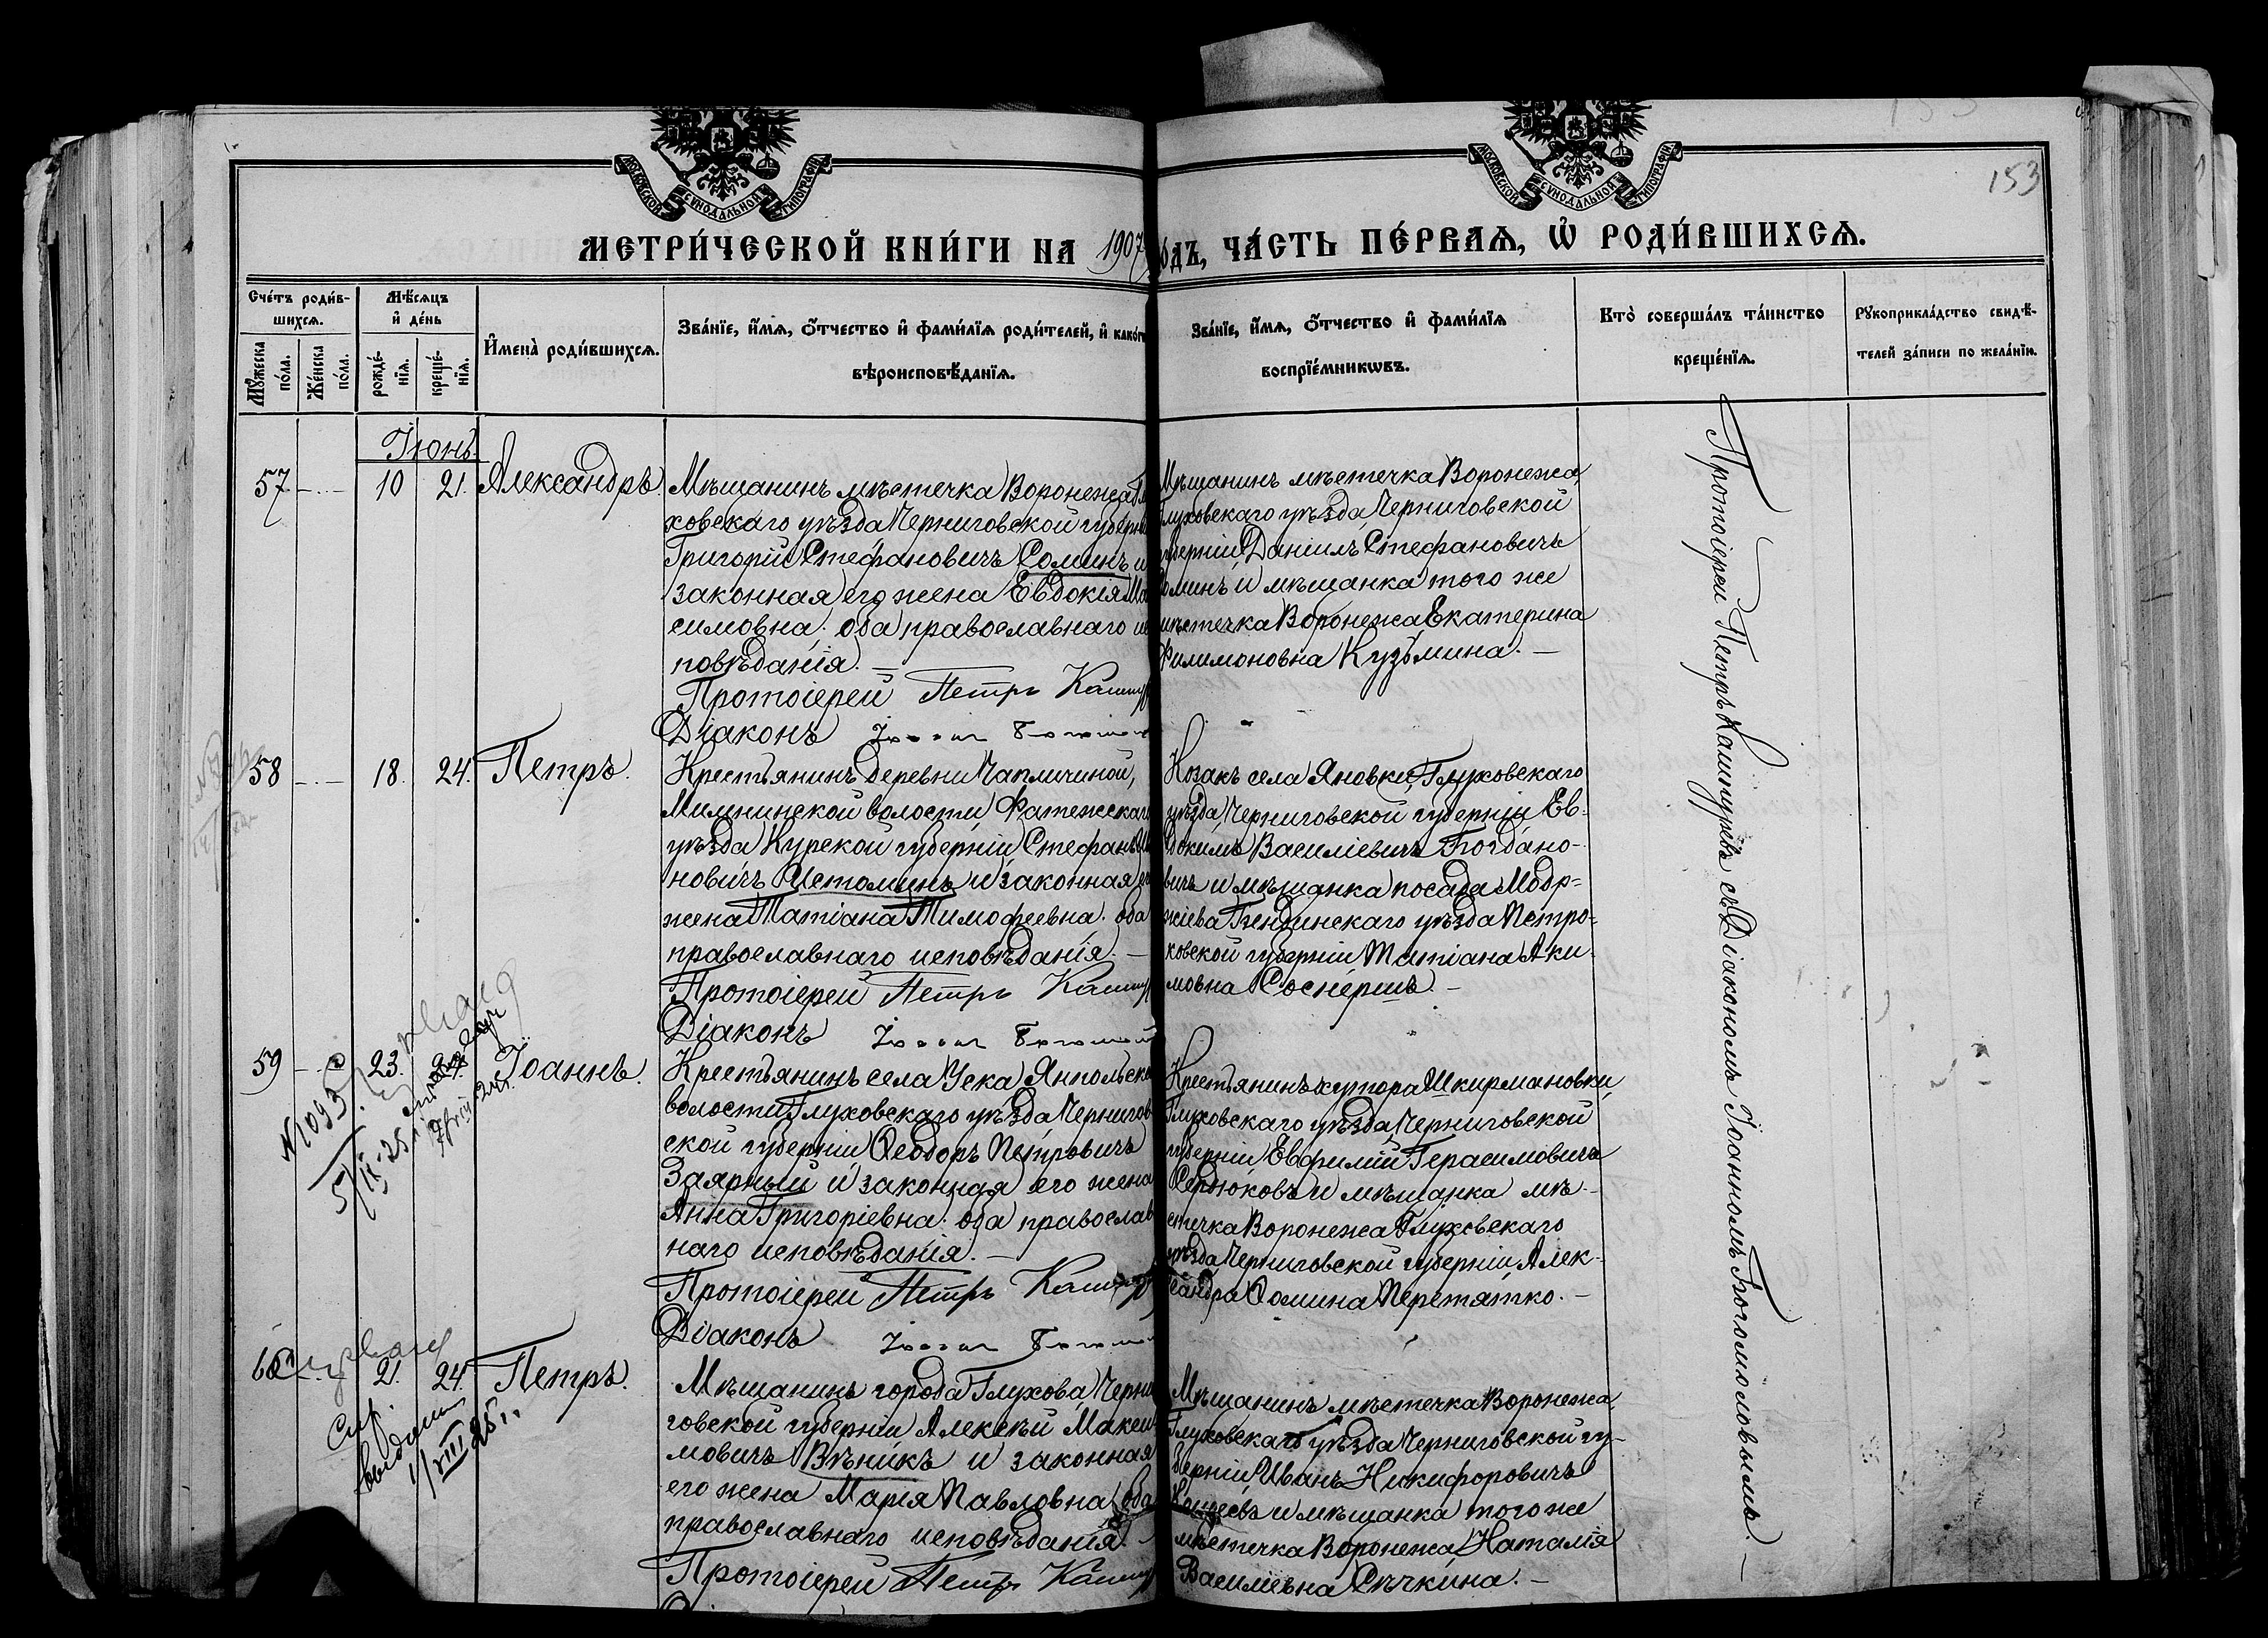 МОСКОВСКОЙ СѴНОДАЛЬНОЙ ТИПОГРАФІИ
МОСКОВСКОЙ СѴНОДАЛЬНОЙ ТИПОГРАФІИ
153
МЕТРИ́ЧЕСКОЙ КНИ́ГИ НА 1907 ОДЪ, ЧА́СТЬ ПЕ́РВАѦ, Ѡ҆ РОДИ́ВШИХСѦ.
Сче́тъ роди́в-
шихсѧ.
Мꙋ́жеска по́ла.
Же́нска по́ла.
Мѣ́сѧцъ
и҆ де́нь
рожде́-
нїѧ.
креще́-
нїѧ.
И҆мена̀ роди́вшихсѧ.
Зва́нїе, и҆́мѧ, ѻ҆́тчество и҆ фами́лїѧ роди́телей, и҆ како́гѡ
вѣроисповѣ́данїѧ.
Зва́нїе, и҆́мѧ, ѻ҆́тчество и҆ фами́лїѧ
воспрїе́мникѡвъ.
Кто̀ соверша́лъ та́инство
креще́нїѧ.
Рꙋкоприкла́дство свидѣ́-
телей за́писи по жела́нїю.
Іюнь.
57 10 21. Александръ.
Мѣщанинъ мѣстечка Воронежа Глу
ховскаго уѣзда Черниговской губерніи
Григорій Стефановичъ Соминъ и
законная его жена Евдокія Мо
симовна; оба православнаго ис
повѣданія. —
Протоіерей Петръ Кашпур
Діаконъ
Мѣщанинъ мѣстечка Воронежа,
Глуховскаго уѣзда, Черниговской
губерніи Даніилъ Стефановичъ
Соминъ и мѣщанка того же
мѣстечка Воронежа, Екатерина
Филимоновна Кузьмина. —
58 18. 24. Петръ.
Крестьянинъ деревни Чапличиной,
Милнинской волости Фатежскаго
уѣзда Курской губерніи Стефанъ И
новичъ Истоминъ и законная его
жена Татіана Тимофеевна; оба
православнаго исповѣданія. —
Протоіерей Петръ Кашпур
Діаконъ
Козакъ села Яновки, Глуховскаго
уѣзда, Черниговской губерніи Ев-
докимъ Василіевичъ Богдано-
вичъ и мѣщанка посада Модр-
жіева Бендинскаго уѣзда Петро-
ковской губерніи Татіана Аки-
мовна Соснершъ. —
59 23. 24. Іоаннъ.
№1093
5/IX-25
Крестьянинъ села Уска, Ямпольско
волости Глуховскаго уѣзда Чернигов
ской губерніи Ѳеодоръ Петровичъ
Заярный и законная его жена
Анна Григоріевна; оба православ
наго исповѣданія. —
Протоіерей Петръ Кашпур
Діаконъ
Крестьянинъ хутора Шкирмановки,
Глуховскаго уѣзда, Черниговской
губерніи Евфимій Герасимовичъ
Сердюковъ и мѣщанка мѣ-
стечка Воронежа Глуховскаго
уѣзда Черниговской губерніи, Алек-
сандра Ѳомина Перетятко. —
60 21. 24. Петръ.
выдана
1/VIII 25 г.
Мѣщанинъ города Глухова, Черни
говской губерніи Алексѣй Макси
мовичъ Вѣникъ и законная
его жена Марія Павловна; оба
православнаго исповѣданія. —
Протоіерей Петръ Кашпур
Мѣщанинъ мѣстечка Воронежа,
Глуховскаго уѣзда Черниговской гу-
берніи, Иванъ Никифоровичъ
и мѣщанка того же
мѣстечка Воронежа, Наталія
Василіевна Сѣчкина. —
Протоіерей Петръ Кашпуревъ съ Діакономъ Іоанномъ Богомоловымъ. —